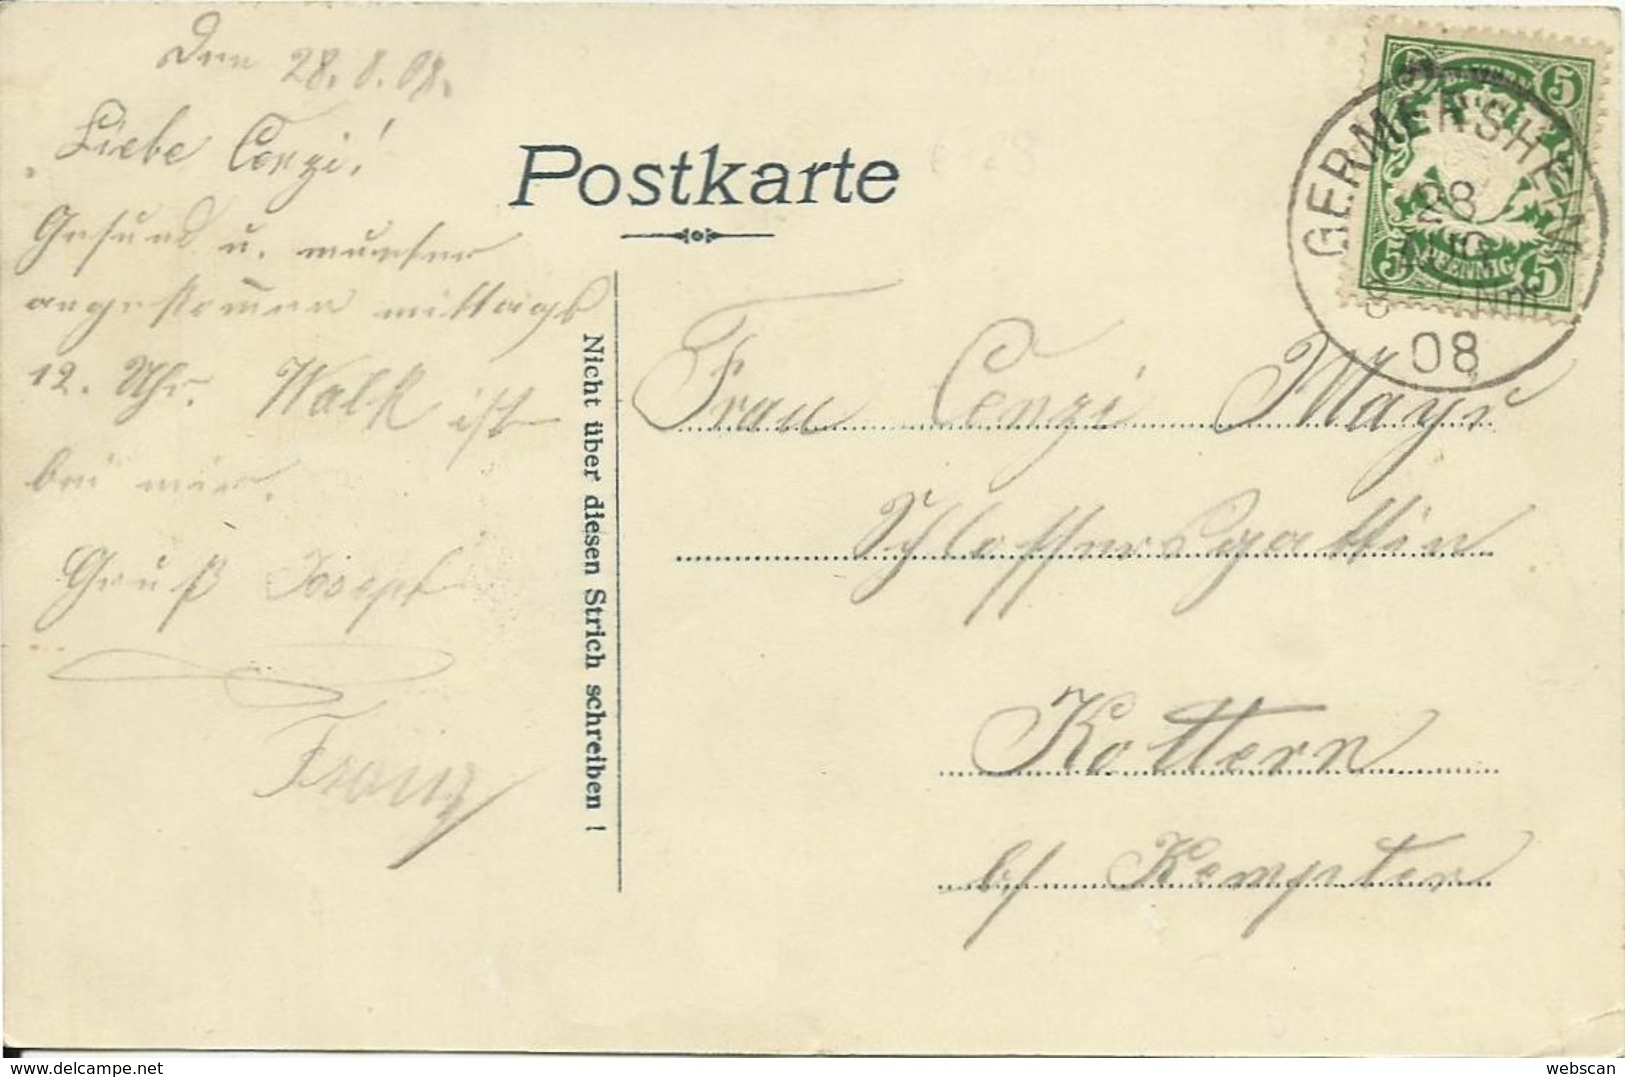 Den 28.8.08.
Liebe Cenzi!
Gesund u. munter
angekom̄en mittags
12. Uhr. Walk ist
bei mir.
Gruß Joseph
Franz
Postkarte
Nicht über diesen Strich schreiben !
GERMERSHEIM
28
AUG
Nm
08
5 5
5 5
BAYERN
PFENNIG
Frau Cenzi Mayr
Schlossersgattin
Kottern
b/ Kempten
delcampe.net
webscan